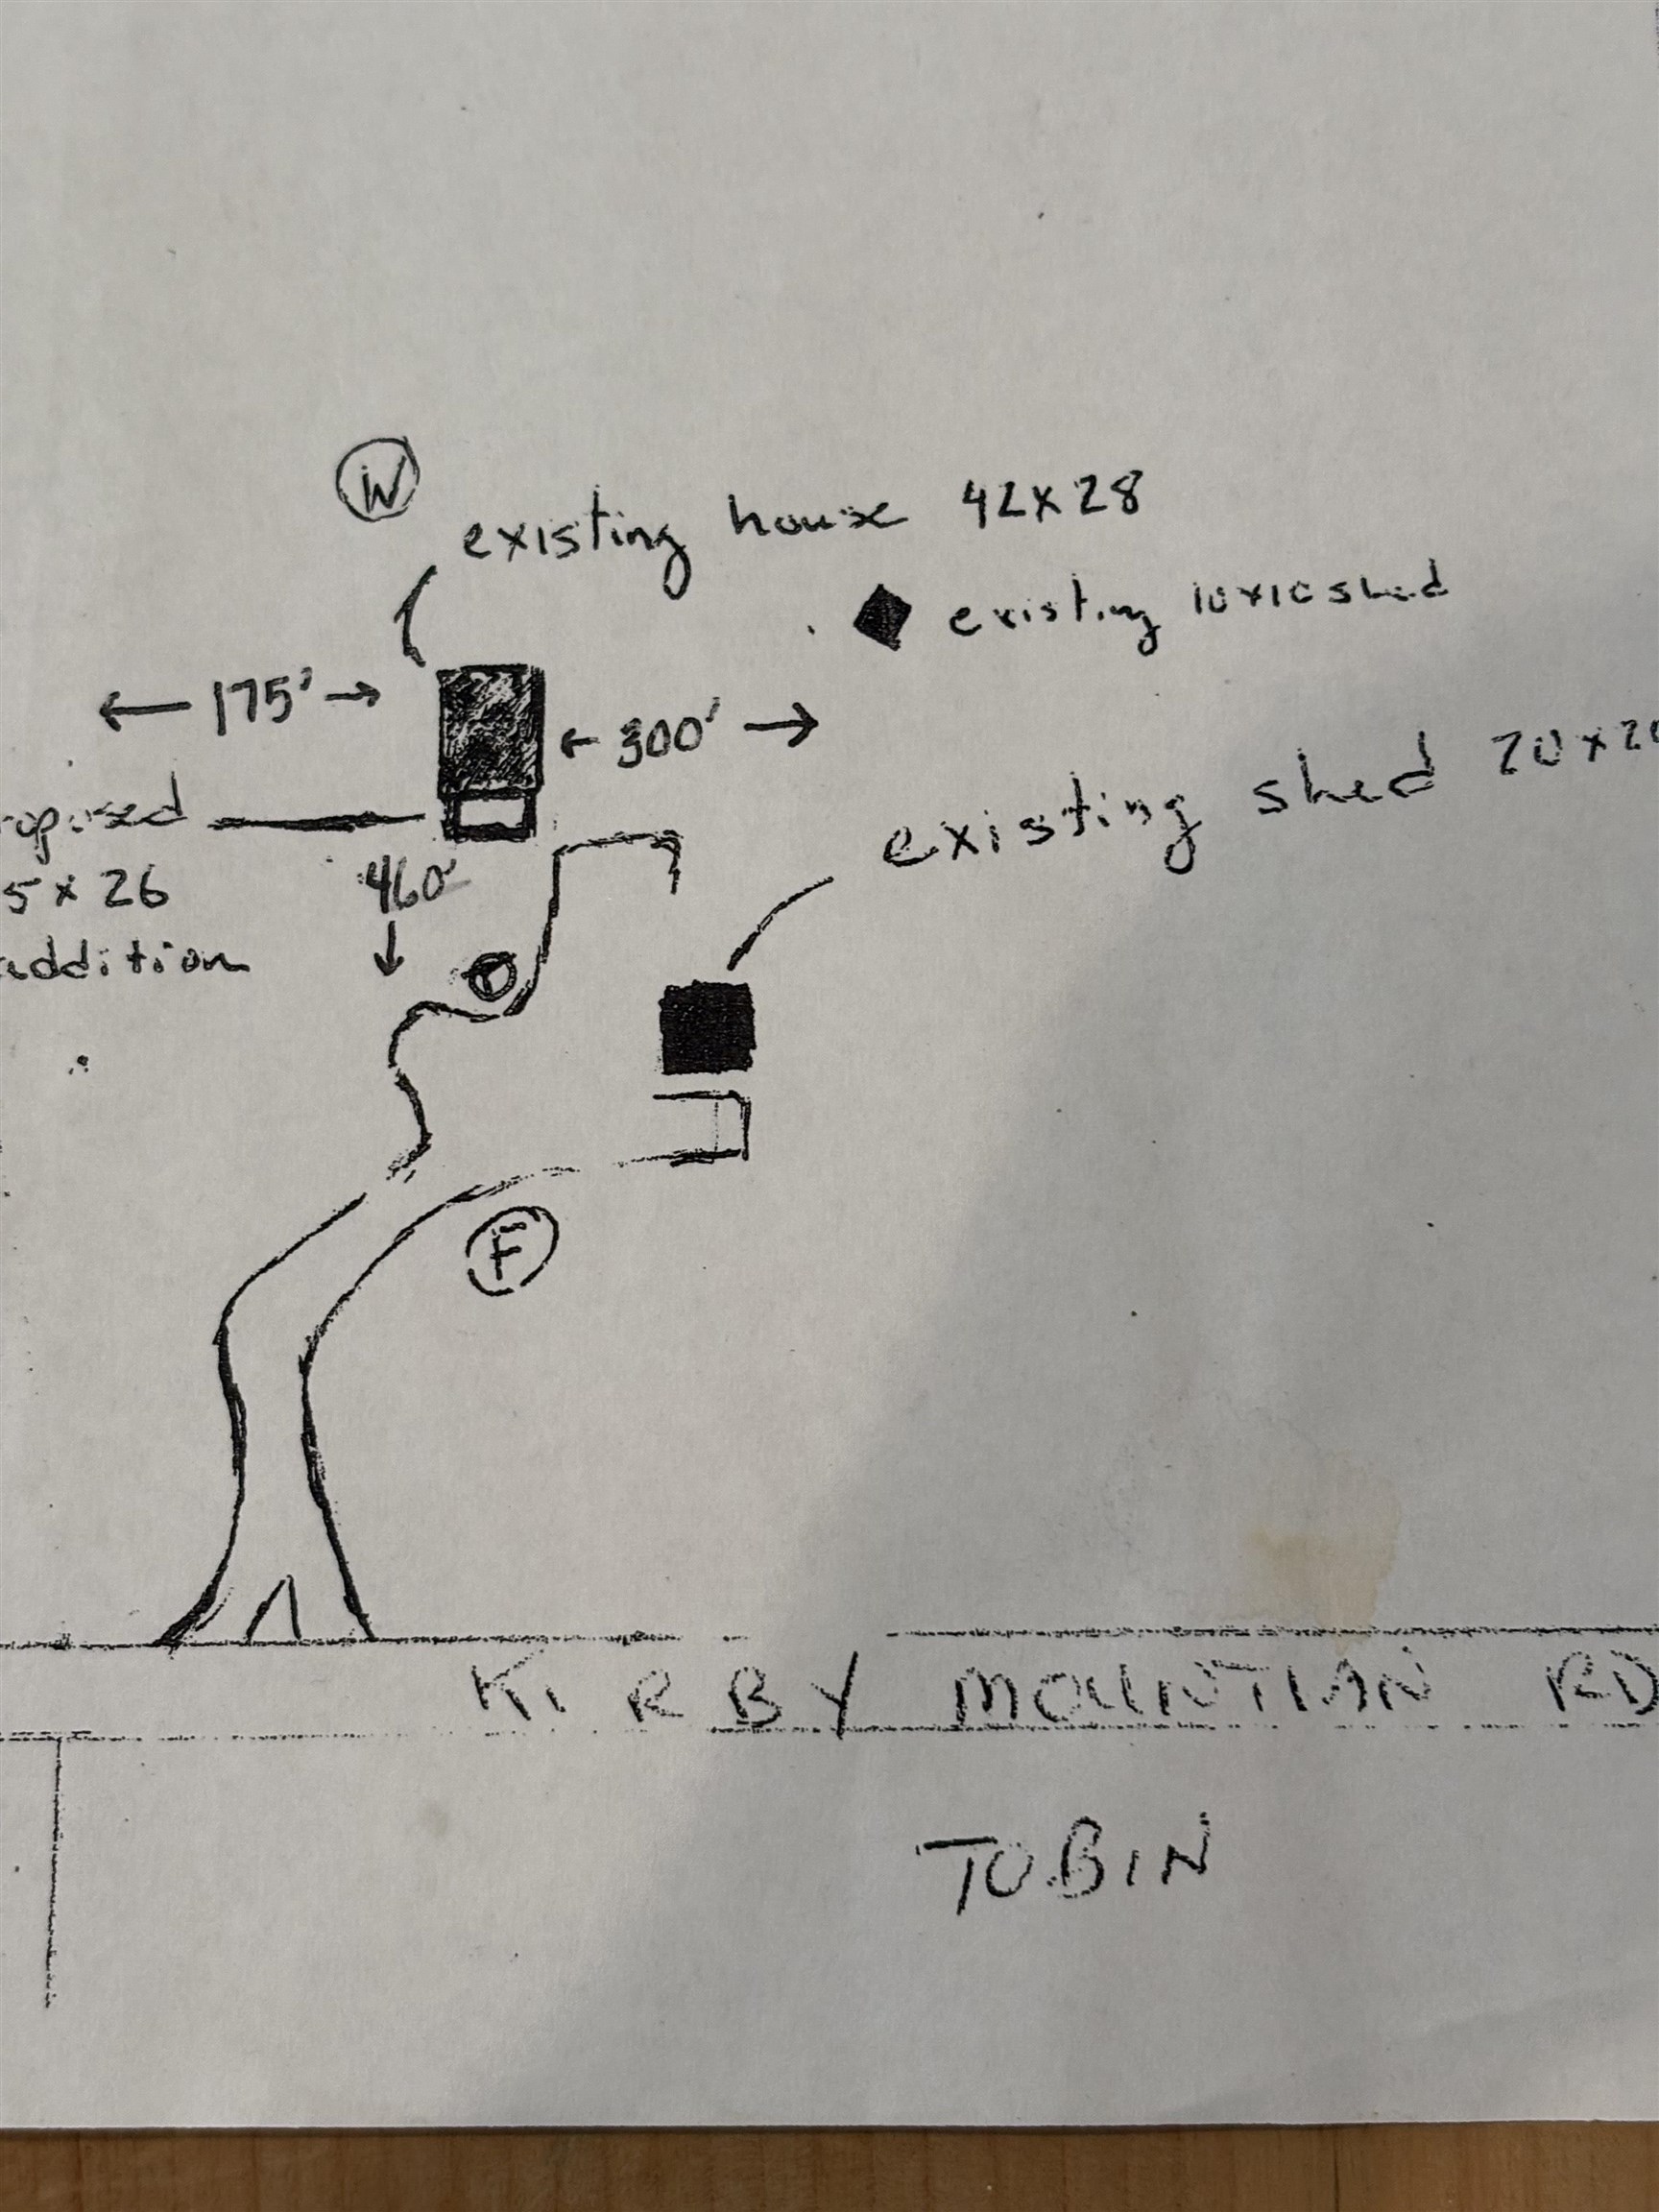 W
existing house 42x28
existing 10x10 shed
175'
300'
existing shed 20x20
oposed
5 x 26
addition
460'
F
KIRBY MOUNTIAN RD
TOBIN